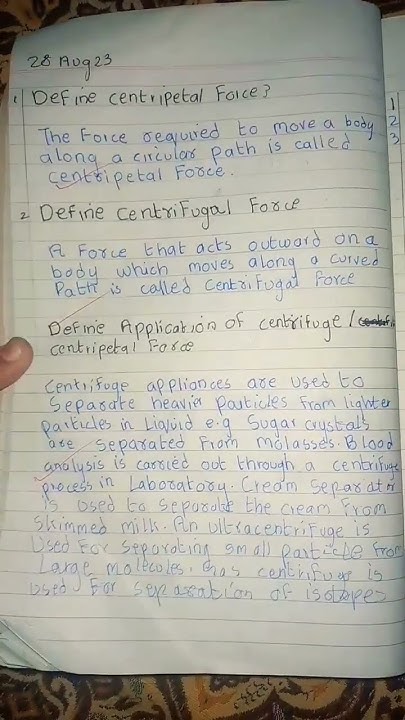 28 Aug 23
1 Define centripetal Force?
The Force required to move a body
along a circular path is called
centripetal Force.
2 Define centrifugal Force
A Force that acts outward on a
body which moves along a curved
Path is called Centrifugal Force
Define Application of centrifuge /
centripetal Force
Centrifuge appliances are used to
Separate heavier Particles From lighter
Particles in Liquid e.g Sugar crystals
are separated From molasses. Blood
analysis is carried out through a centrifuge
process in Laboratory. Cream Separator
is used to separate the cream From
Skimmed milk. An ultracentrifuge is
Used For separating small Particle From
Large molecules. Gas centrifuge is
Used For separation of isotopes
1
2
3